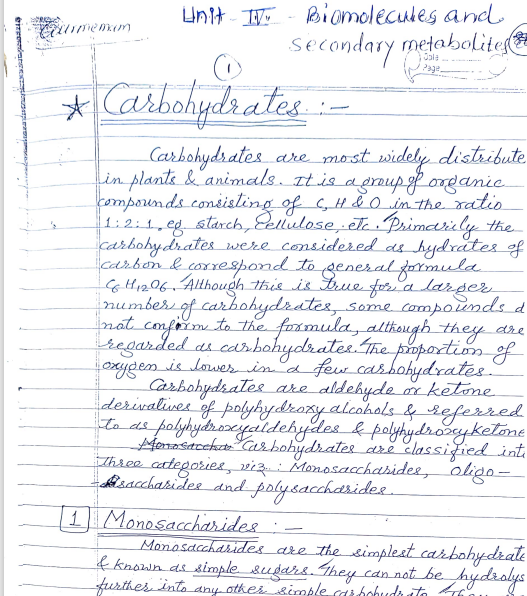 Unit - IV - Biomolecules and
secondary metabolites
Date
Page
1
Carbohydrates :-
Carbohydrates are most widely distribute
in plants & animals. It is a group of organic
compounds consisting of C, H & O in the ratio
1:2:1. eg. starch, cellulose, etc. Primarily the
carbohydrates were considered as hydrates of
carbon & correspond to general formula
C6H12O6. Although this is true for a larger
number of carbohydrates, some compounds d
not confirm to the formula, although they are
regarded as carbohydrates. The proportion of
oxygen is lower in a few carbohydrates.
Carbohydrates are aldehyde or ketone
derivatives of polyhydroxy alcohols & referred
to as polyhydroxyaldehydes & polyhydroxyketone
Carbohydrates are classified int
three categories, viz: Monosaccharides, oligo-
saccharides and polysaccharides.
1 Monosaccharides :-
Monosaccharides are the simplest carbohydrate
& known as simple sugars. They can not be hydrolys
further into any other simple carbohydrate. They